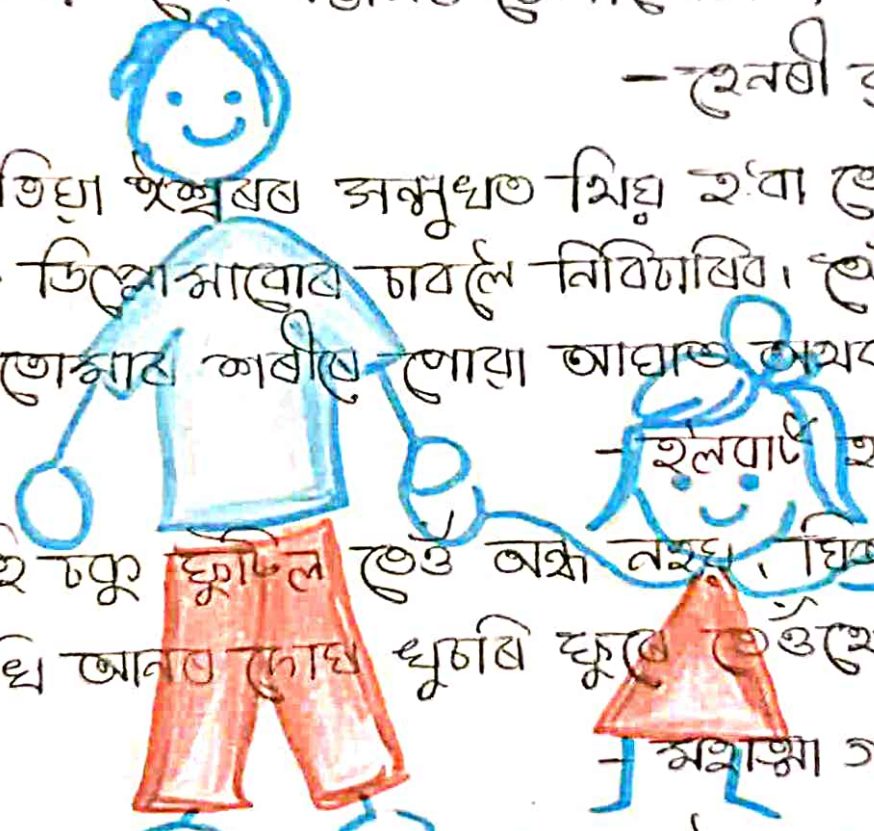 – হেনৰী
ঈশ্বৰৰ সন্মুখত থিয় হ'বা
ডিপ্লোমাবোৰ চাবলৈ নিবিচাৰিব।
তোমাৰ শৰীৰে পোৱা আঘাত অথব
– হলবাৰ্ট
চকু ফুটিল তেওঁ অন্ধ নহয়,
আনৰ দোষ খুচৰি ফুৰে তেওঁহে
– মহাত্মা